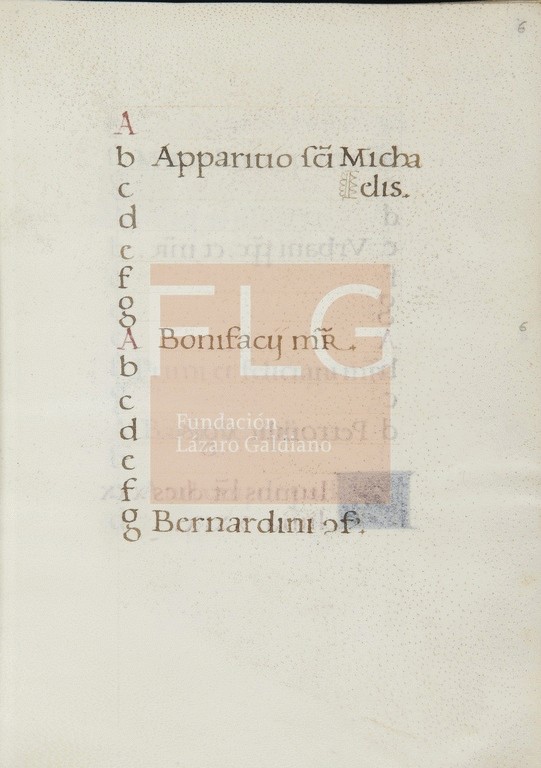 6
A
b Apparitio sc̄i Micha
c elis.
d
e
f
g
A Bonifacij mr̄.
b
c
d
e
f
g Bernardini ɔf.
6
FLG
Fundación
Lázaro Galdiano